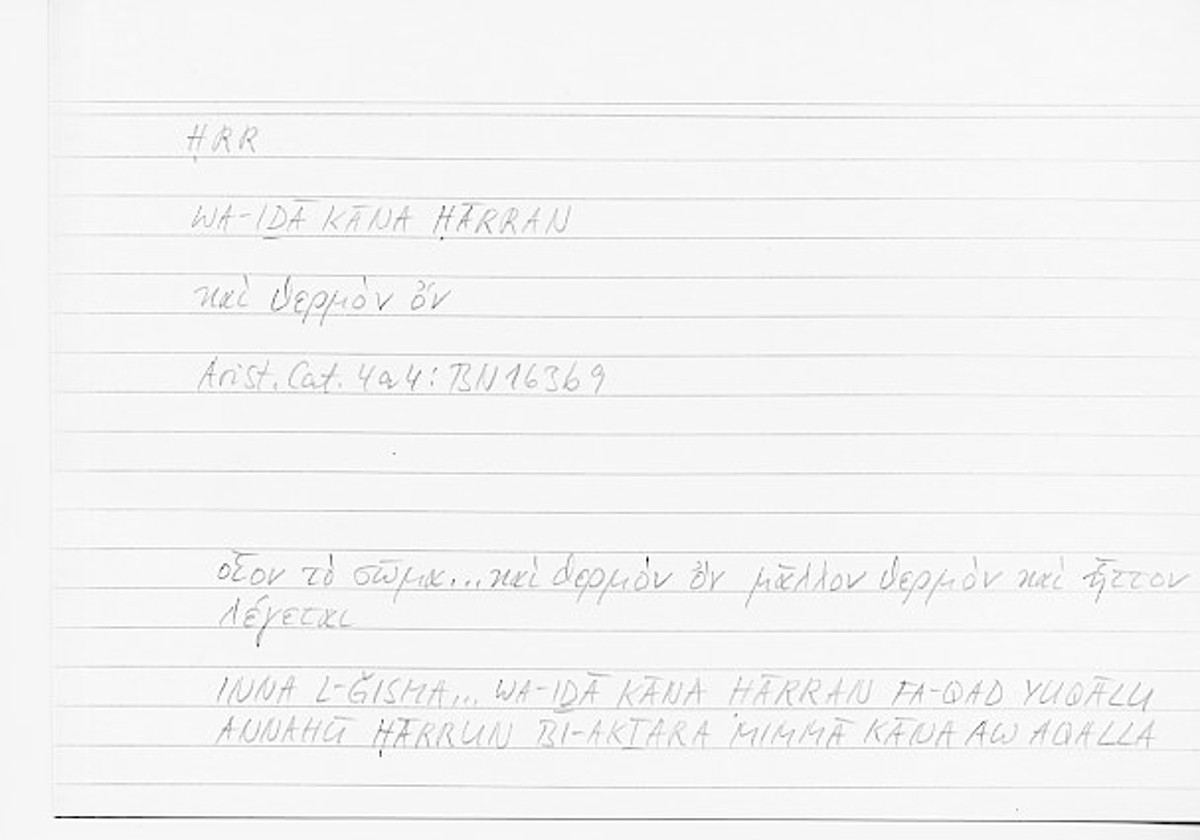 ḤRR
WA-IḎĀ KĀNA ḤĀRRAN
καὶ θερμὸν ὄν
Arist. Cat. 4a4: BN16369
οἷον τὸ σῶμα...καὶ θερμὸν ὂν μᾶλλον θερμὸν καὶ ἧττον
λέγεται
INNA L-ǦISMA... WA-IḎĀ KĀNA ḤĀRRAN FA-QAD YUQĀLU
ANNAHŪ ḤĀRRUN BI-AKṮARA MIMMĀ KĀNA AW AQALLA